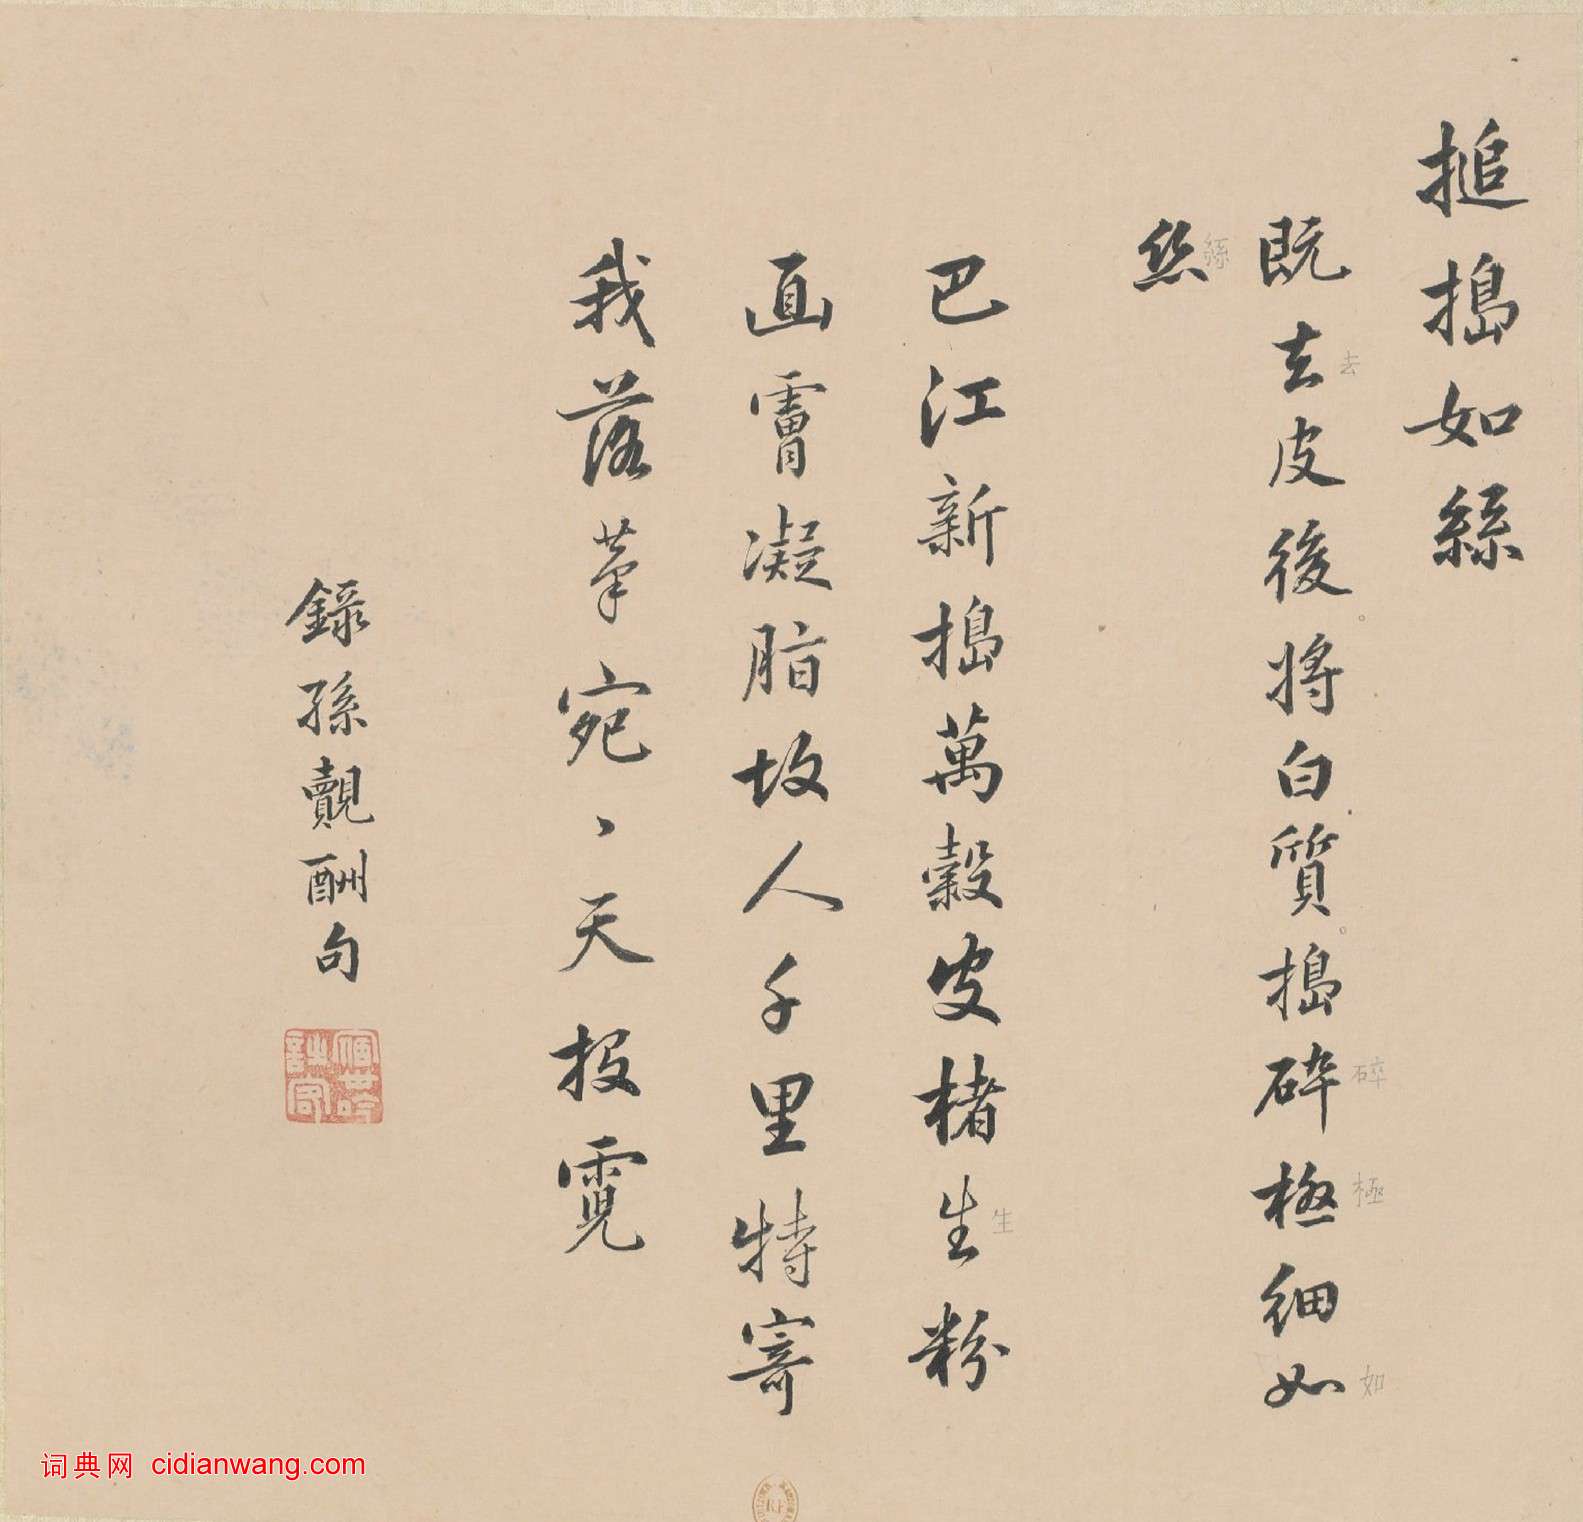 搥搗如絲
既去皮後。將白質。搗碎極細如
絲
巴江新搗萬榖皮楮生粉
面霤凝脂故人千里特寄
我落筆宛、天投霓
錄孫覿酬句
絲
去
碎
極
如
生
词典网 cidianwang.com